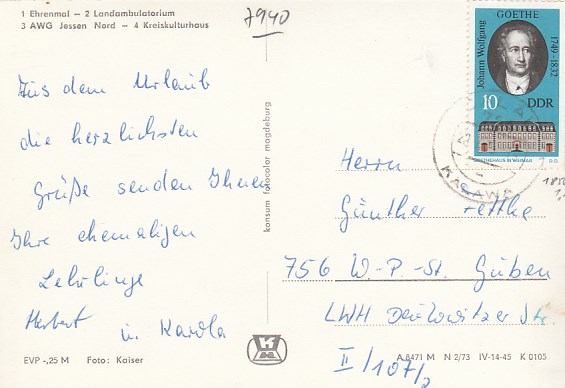 1 Ehrenmal – 2 Landambulatorium
3 AWG Jessen Nord – 4 Kreiskulturhaus
7940
Johann Wolfgang
GOETHE
1749-1832
10 DDR
GOETHEHAUS IN WEIMAR
Aus dem Urlaub
die herzlichsten
Grüße senden Ihnen
Ihre ehemaligen
Lehrlinge
Herbert u. Karola
konsum fotocolor magdeburg
KACAWA
Herrn
Günther
756 W.-P.-St. Guben
LWH Str.
II/107/2
EVP -,25 M Foto: Kaiser
A 8471 M N 2/73 IV-14-45 K 0105